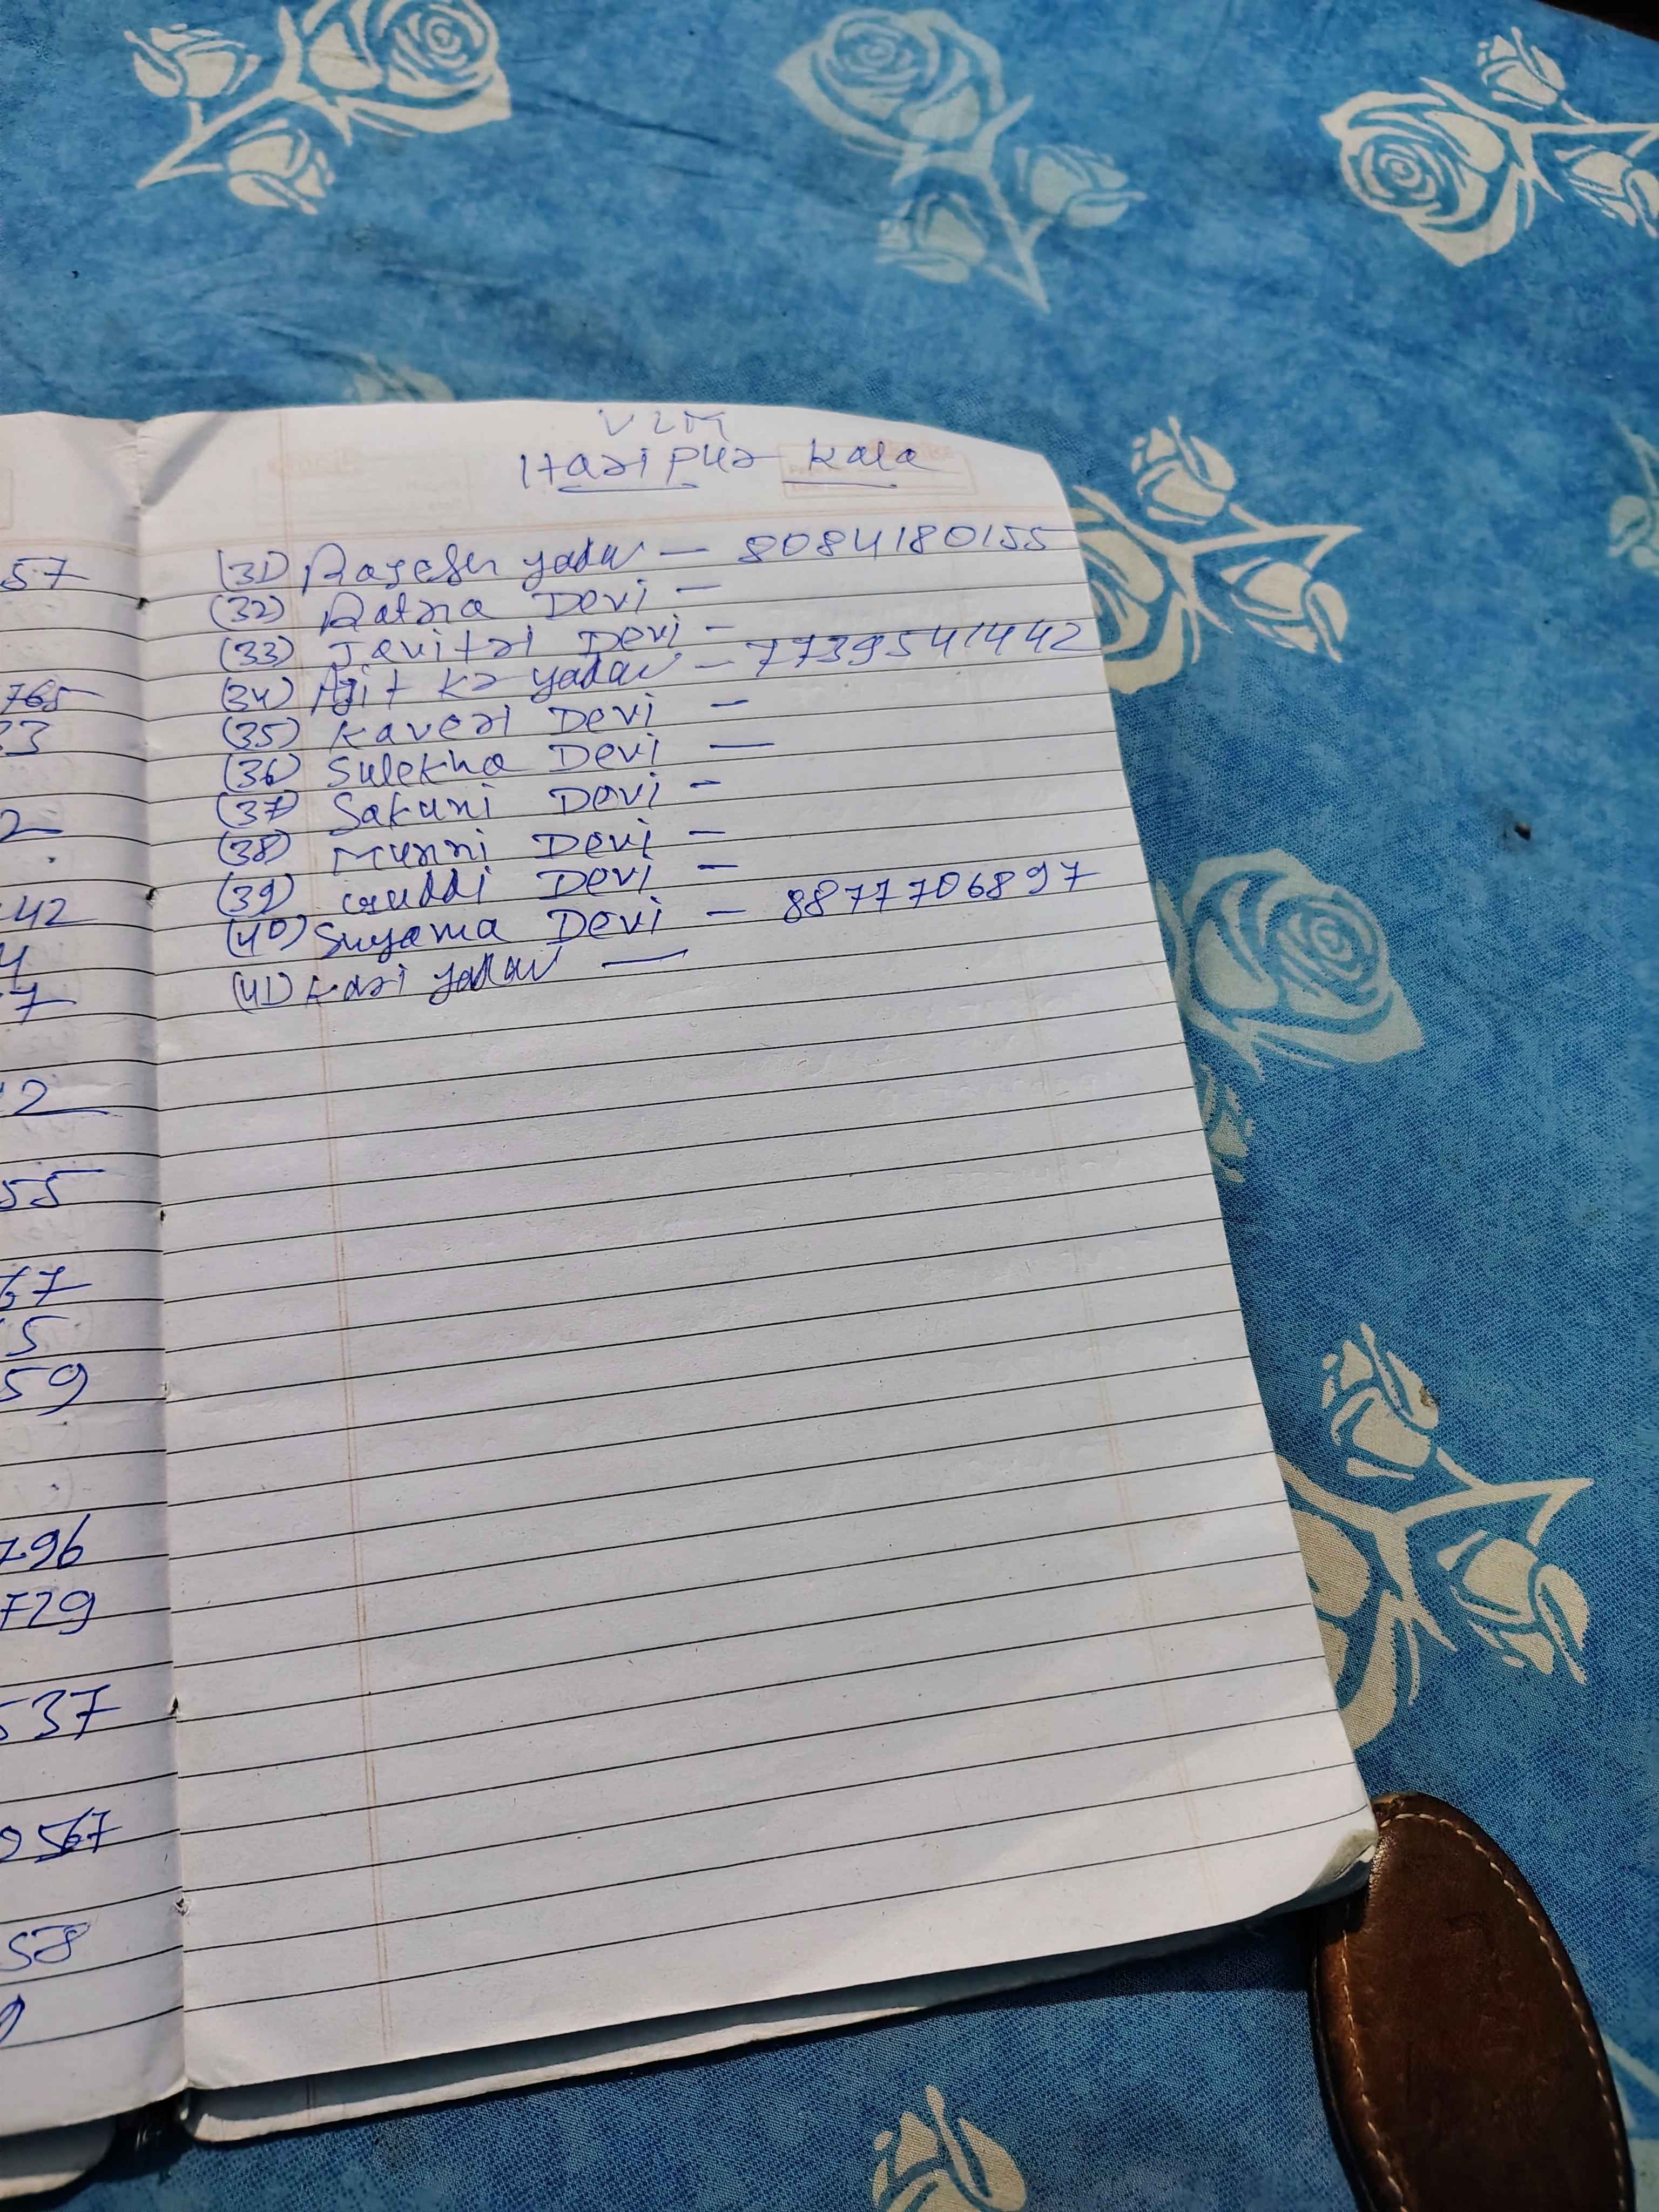 57
765
33
2
42
4
7
2
55
67
5
59
796
729
537
567
58
VLM
Haripur Kala
(31) Rajesh yadav — 8084180155
(32) Ratna Devi —
(33) Javitri Devi —
(34) Ajit Kr yadav — 7739541442
(35) Kaveri Devi —
(36) Sulekha Devi —
(37) Sakuni Devi —
(38) Munni Devi —
(39) Guddi Devi —
(40) Suyama Devi — 8877706897
(41) Kari yadav —